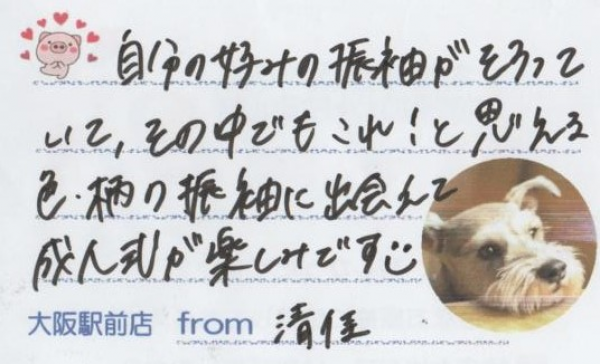 自分の好みの振袖がそろって
いて、その中でもこれ!と思える
色・柄の振袖に出会えて
成人式が楽しみです
大阪駅前店 from 清佳